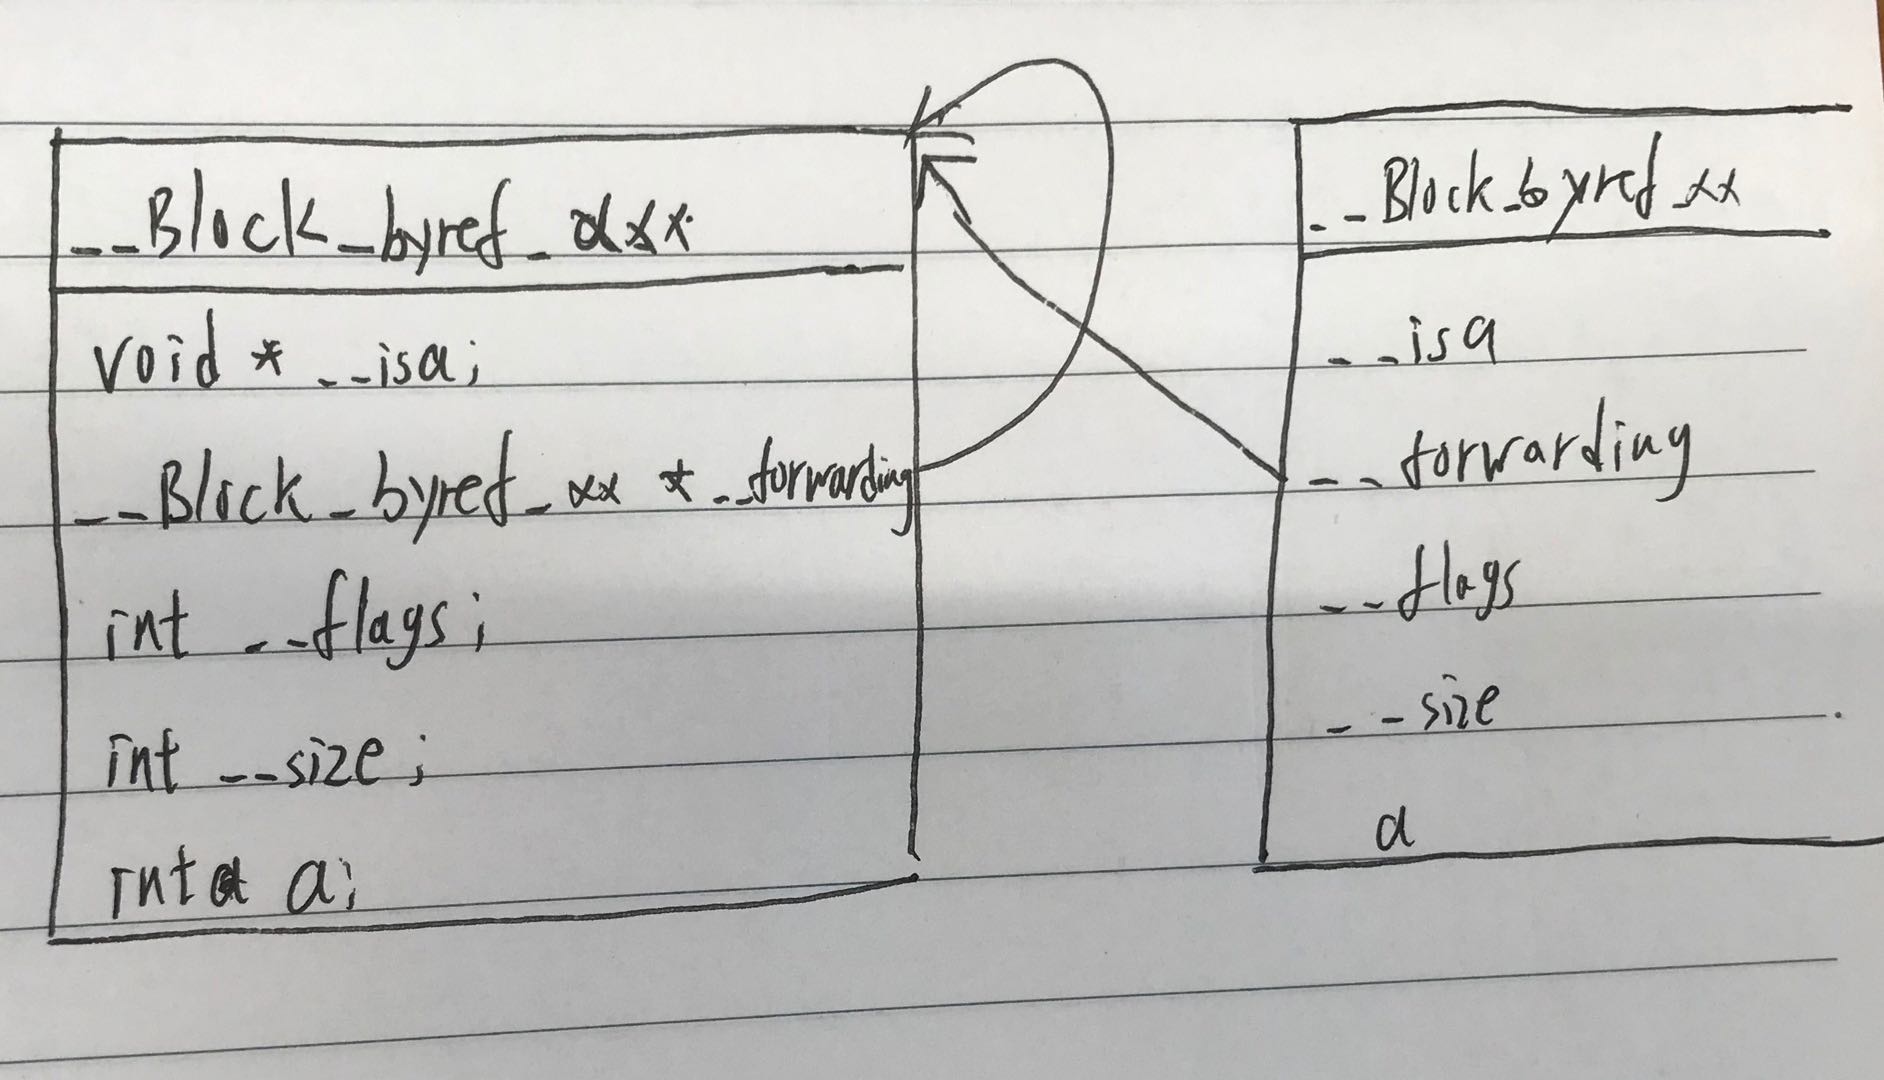 __Block_byref_xxx
void * __isa;
__Block_byref_xx * __forwarding
int __flags;
int __size;
int a;
__Block_byref_xx
__isa
__forwarding
__flags
__size
a